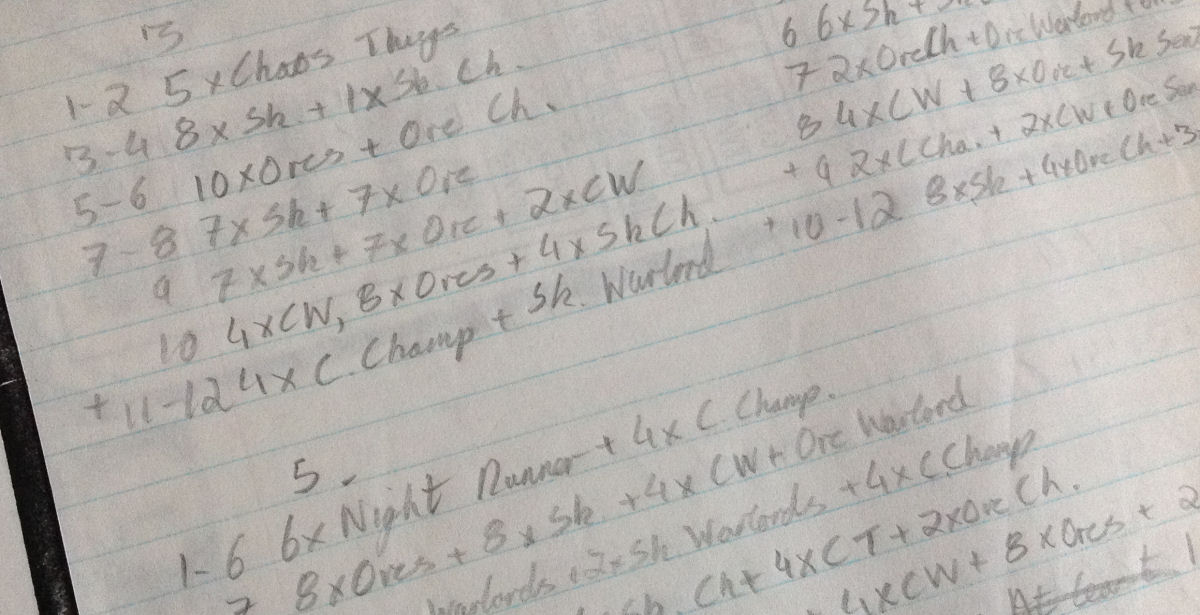 3
1-2 5xChaos Thugs
3-4 8x Sk. + 1x Sk. Ch.
5-6 10xOrcs + Orc Ch.
7-8 7x Sk + 7x Orc
9 7xSk + 7x Orc + 2xCW
10 4xCW, 8xOrcs + 4xSkCh.
+ 11-12 4x C. Champ + Sk. Warlord
6 6xSk +
7 2xOrcCh + Orc Warlord +
8 4xCW + 8xOrc + Sk
+ 9 2xCCha. + 2xCW + Orc
+ 10-12 8xSk + 4xOrc Ch + 3
5.
1-6 6x Night Runner + 4x C Champ.
7 8xOrcs + 8 x Sk. + 4x CW + Orc Warlord
Warlords + 2xSk Warlords + 4xCChamp
Ch + 4xCT + 2xOrc Ch.
4xCW + 8xOrcs + 2
At least 1